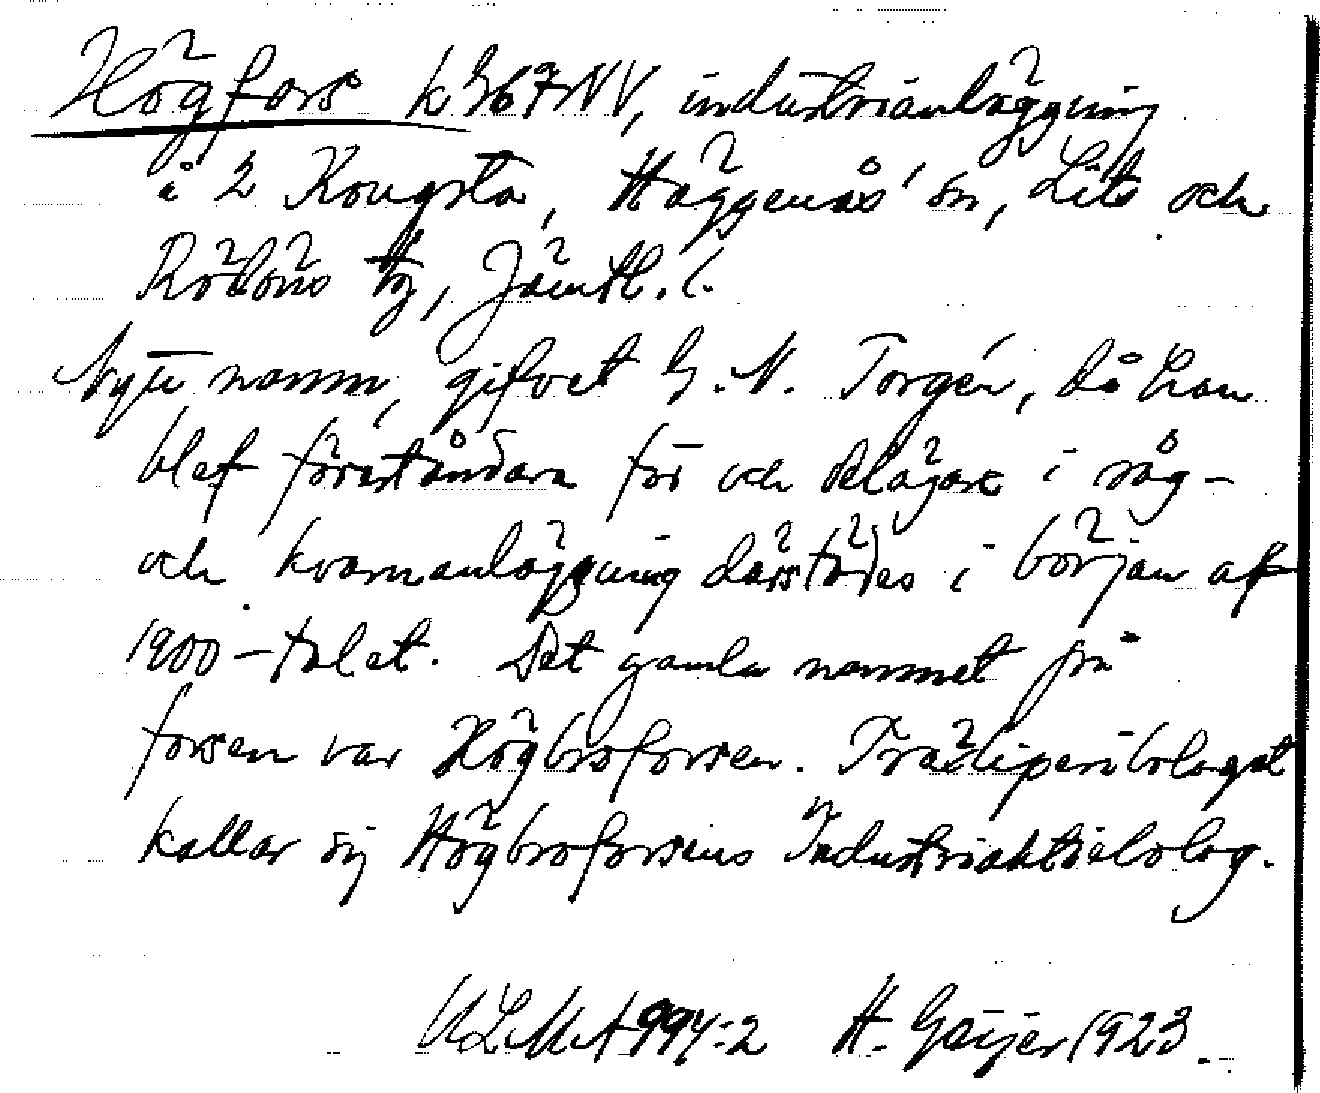 Högfors k 367 NV, industrianläggning
å 2 Kougsta, Häggenås' sn, Lits och
Rödöns tg, Jämtl. l.
Nytt namn, gifvet G. N. Torgén, då han
blef förestandare för och delägare i såg-
och kvarnanläggning därstädes i början af
1900-talet. Det gamla namnet på
forsen var Högbroforsen. Träsliperibolaget
kallar sig Högbroforsens Industriaktiebolag.
ULMA 994:2 H. Geijer 1923.